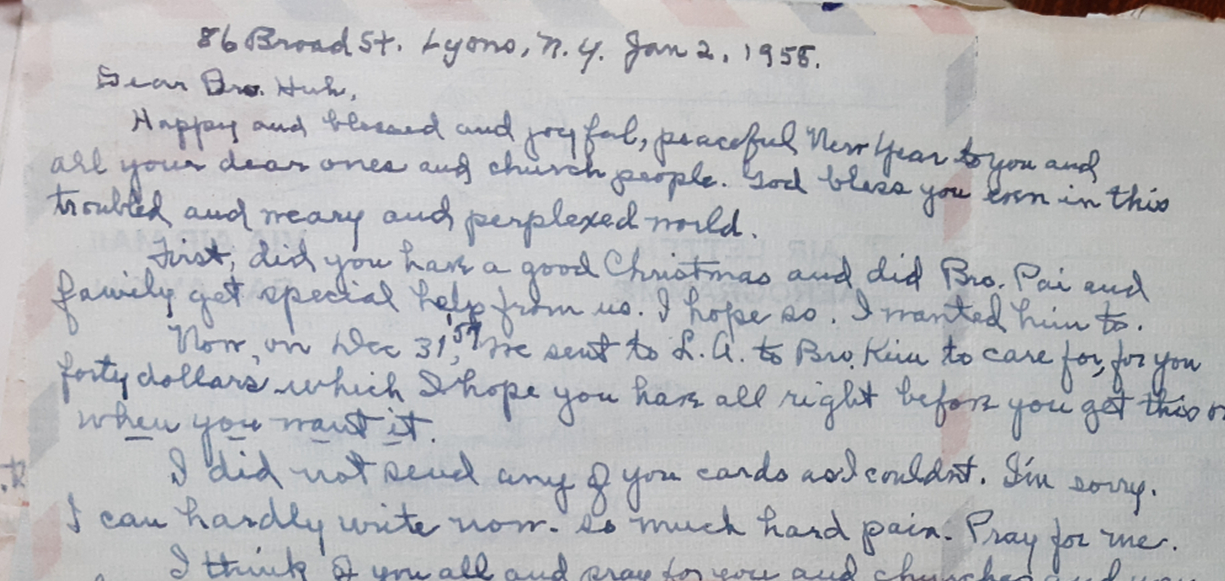 86 Broad St. Lyons, N.Y. Jan 2, 1958.
Dear Bro. Huh,
Happy and blessed and joyful, peaceful New Year to you and
all your dear ones and church people. God bless you even in this
troubled and weary and perplexed world.
First, did you have a good Christmas and did Bro. Pai and
family get special help from us. I hope so. I wanted him to.
Now, on Dec 31, '57 we sent to L.A. to Bro. Kim to care for, for you
forty dollars which I hope you have all right before you get this or
when you want it.
I did not send any of you cards as I couldnt. I'm sorry.
I can hardly write now. so much hard pain. Pray for me.
I think of you all and pray for you and churches and